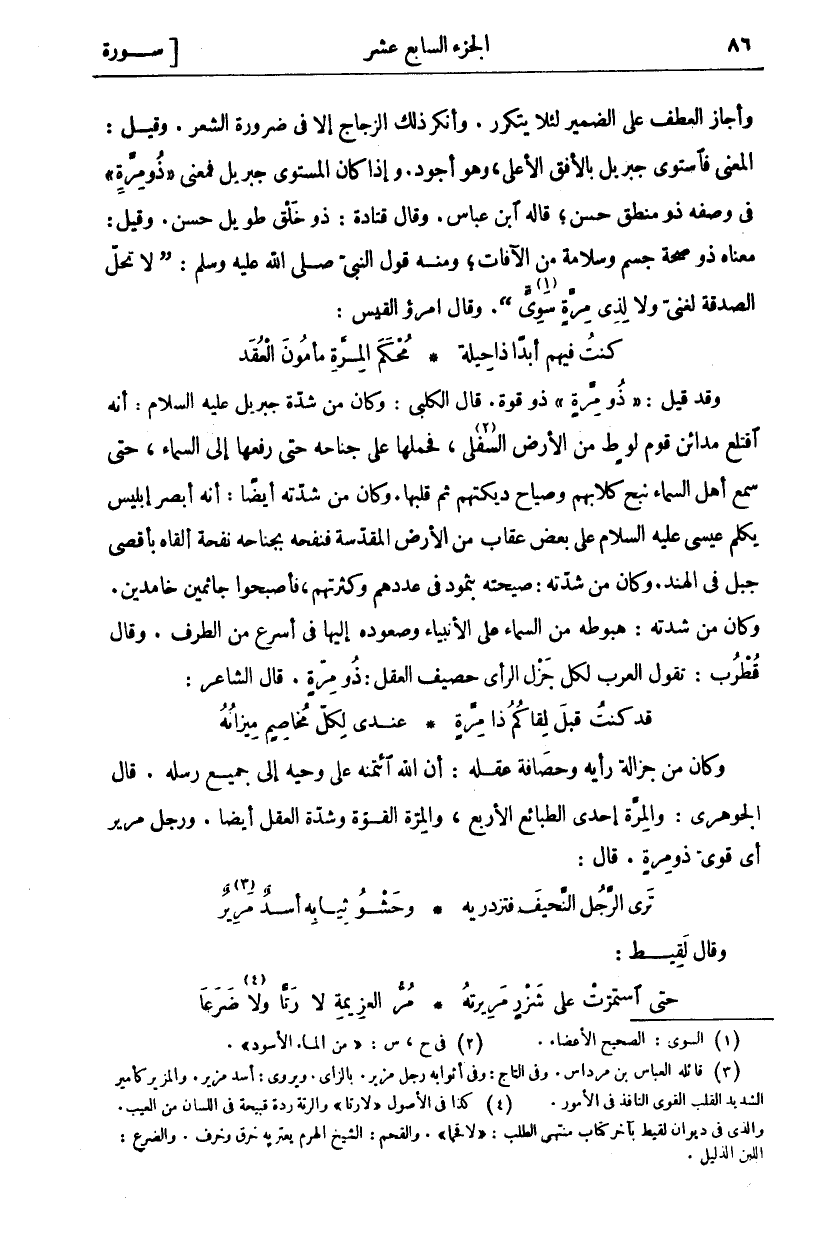 ٨٦ الجزء السابع عشر [ ســورة
وأجاز العطف على الضمير لئلا يتكرر . وأنكر ذلك الزجاج إلا فى ضرورة الشعر . وقيـل :
المعنى فآستوى جبريل بالأفق الأعلى، وهو أجود. وإذا كان المستوى جبريل فمعنى «ذُو مِرَّةٍ»
فى وصفه ذو منطق حسن؛ قاله آبن عباس. وقال قتادة : ذو خَلْق طويل حسن. وقيل:
معناه ذو صحة جسم وسلامة من الآفات؛ ومنـه قول النبىّ صـلى الله عليه وسلم : ” لا تحلّ
الصدقة لغنىّ ولا لِذِى مِرَّةٍ سَوِىٍّ (١) “. وقال امرؤ القيس :
كنتُ فيهم أبدًا ذا حِيلة * مُحْكَمَ المِـرَّةِ مأمُونَ الْعُقَد
وقد قيل : « ذُو مِرَّةٍ » ذو قوة. قال الكلبى : وكان من شدّة جبريل عليه السلام : أنه
آقتلع مدائن قوم لوط من الأرض السُّفْلى (٢) ، فحملها على جناحه حتى رفعها إلى السماء ، حتى
سمع أهل السماء نبح كلابهم وصياح ديكتهم ثم قلبها. وكان من شدّته أيضًا : أنه أبصر إبليس
يكلم عيسى عليه السلام على بعض عقاب من الأرض المقدّسة فنفحه بجناحه نفحة ألقاه بأقصى
جبل فى الهند. وكان من شدّته : صيحته بثمود فى عددهم وكثرتهم، فأصبحوا جاثمين خامدين.
وكان من شدته : هبوطه من السماء على الأنبياء وصعوده إليها فى أسرع من الطرف . وقال
قُطْرُب : تقول العرب لكل جَزْل الرأى حصيف العقل : ذُو مِرّةٍ . قال الشاعر :
قد كنتُ قبلَ لِقاكُمُ ذا مِرَّةٍ * عنـدى لِكلّ مُخاصِمٍ مِيزانُهُ
وكان من جزالة رأيه وحصَافة عقـله : أن الله آئتمنه على وحيه إلى جميـع رسله . قال
الجوهرى : والمِرَّة إحدى الطبائع الأربع ، والمِرّة القـوّة وشدّة العقل أيضا . ورجل مرير
أى قوىّ ذو مِرةٍ . قال :
تَرى الرَّجُل النَّحيفَ فتزدريه * وحَشْـوُ ثِيـابِه أسـدٌ مَرِيرُ (٣)
وقال لَقِيـط :
حتى آستمرّتْ على شَزْرٍ مَرِيرتهُ * مُرُّ العزِيمةِ لا رَتًّا ولا ضَرَعَا (٤)
(١) السوىّ : الصحيح الأعضاء . (٢) فى ح ، س : « من الماء الأسود » .
(٣) قائله العباس بن مرداس . وفى التاج : وفى أثوابه رجل مزير . بالزاى . ويروى : أسد مزير . والمزير كأمير
الشديد القلب القوى النافذ فى الأمور . (٤) كذا فى الأصول «لا رتا» والرتة ردة قبيحة فى اللسان من العيب.
والذى فى ديوان لقيط بآخر كتاب منتهى الطلب : «لا قحما» . والقحم : الشيخ الهرم يعتريه خرق وخرف . والضرع :
اللين الذليل .